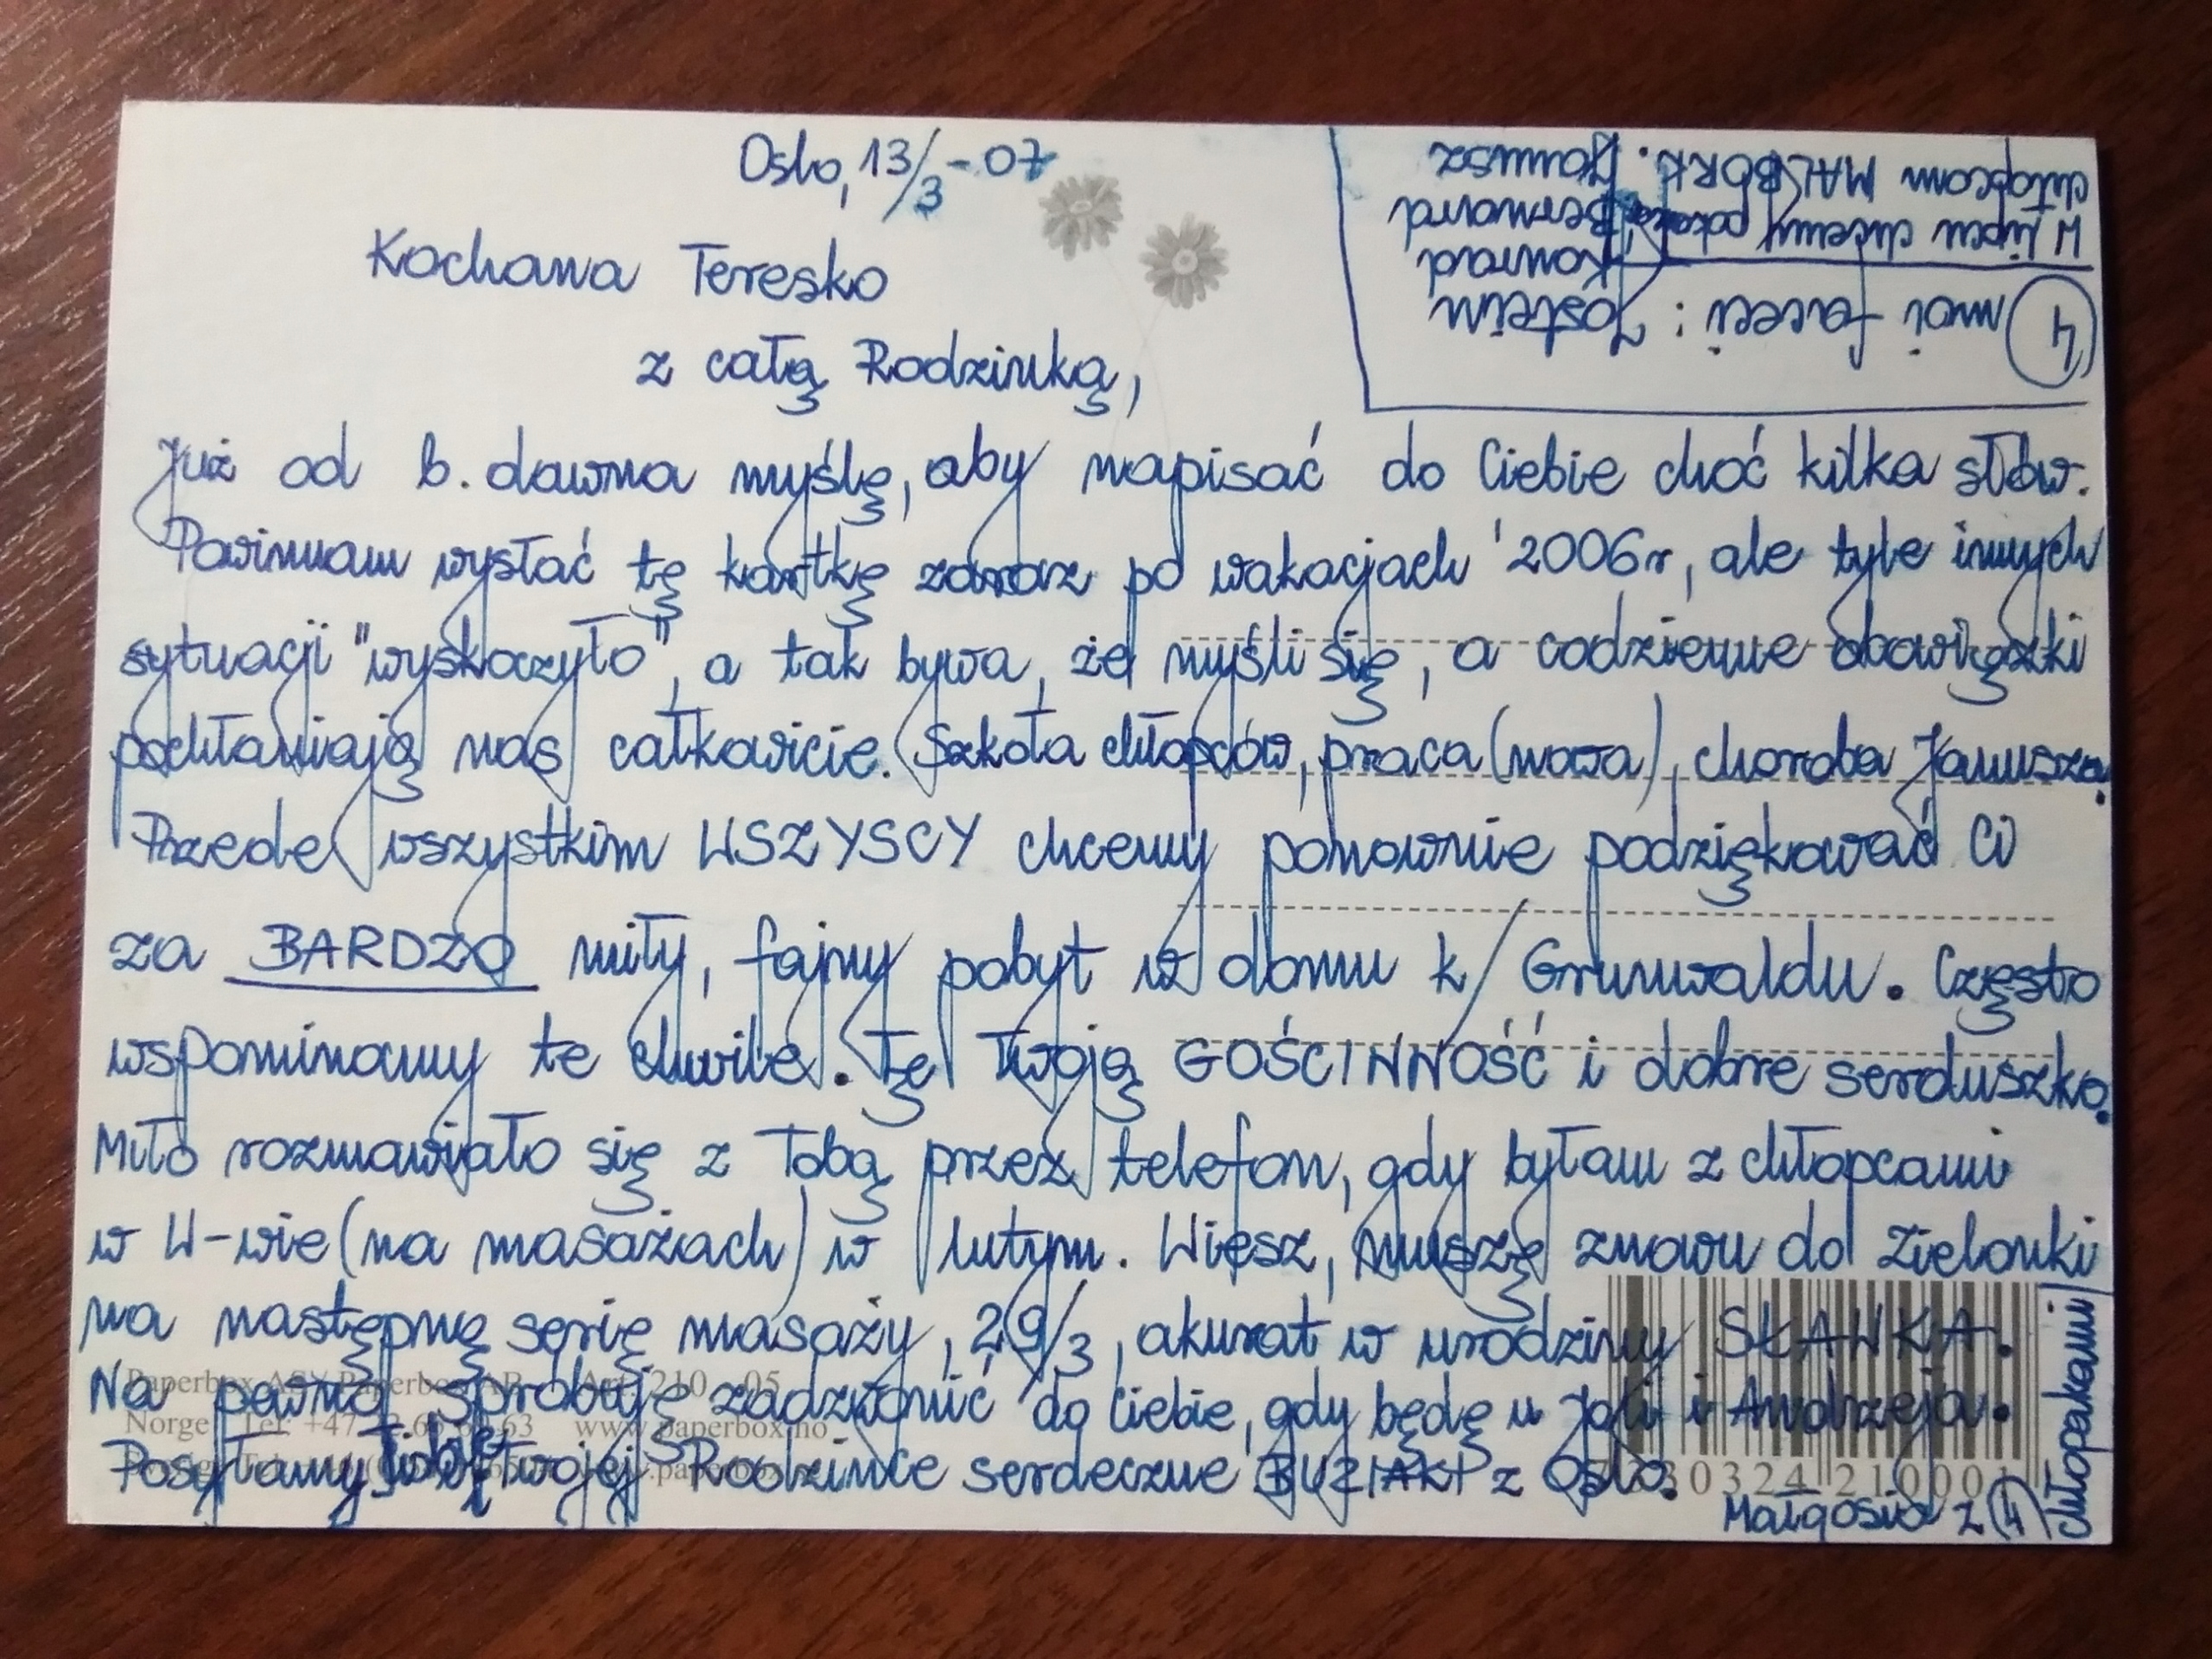 Oslo, 13/3 - 07
KochanaTeresko
z całą Rodzinką,
Już od b. dawna myślę, aby napisać do Ciebie choć kilka słów.
Powinnam wysłać tę kartkę zaraz po wakacjach '2006r, ale tyle innych
sytuacji "wyskoczyło", a tak bywa, że myśli się, a codzienne obowiązki
pochłaniają nas całkowicie. Szkoła chłopców, praca (nowa), choroba Janusza.
Przede wszystkim WSZYSCY chcemy ponownie podziękować Ci
za BARDZO miły, fajny pobyt w domu k/Grunwaldu. Często
wspominamy te chwile. Tę Twoją GOŚCINNOŚĆ i dobre serduszko.
Miło rozmawiało się z Tobą przez telefon, gdy byłam z chłopcami
w W-wie (na masażach) w lutym. Wiesz, muszę znowu do Zielonki
na następną serię masaży, 29/3, akurat w urodziny SŁAWKA.
Na pewno spróbuję zadzwonić do Ciebie, gdy będę u Joli i Andrzeja.
Posyłamy Tobie i Twojej Rodzince serdeczne BUZIAKI z Oslo.
Małgosia z 4
chłopakami
4 moi faceci: Jostein
Konrad
Bernard
Janusz
W lipcu chcemy pokazać
chłopcom MALBORK.
Paperbox AS
Norge Tel: +47
www.paperbox.no